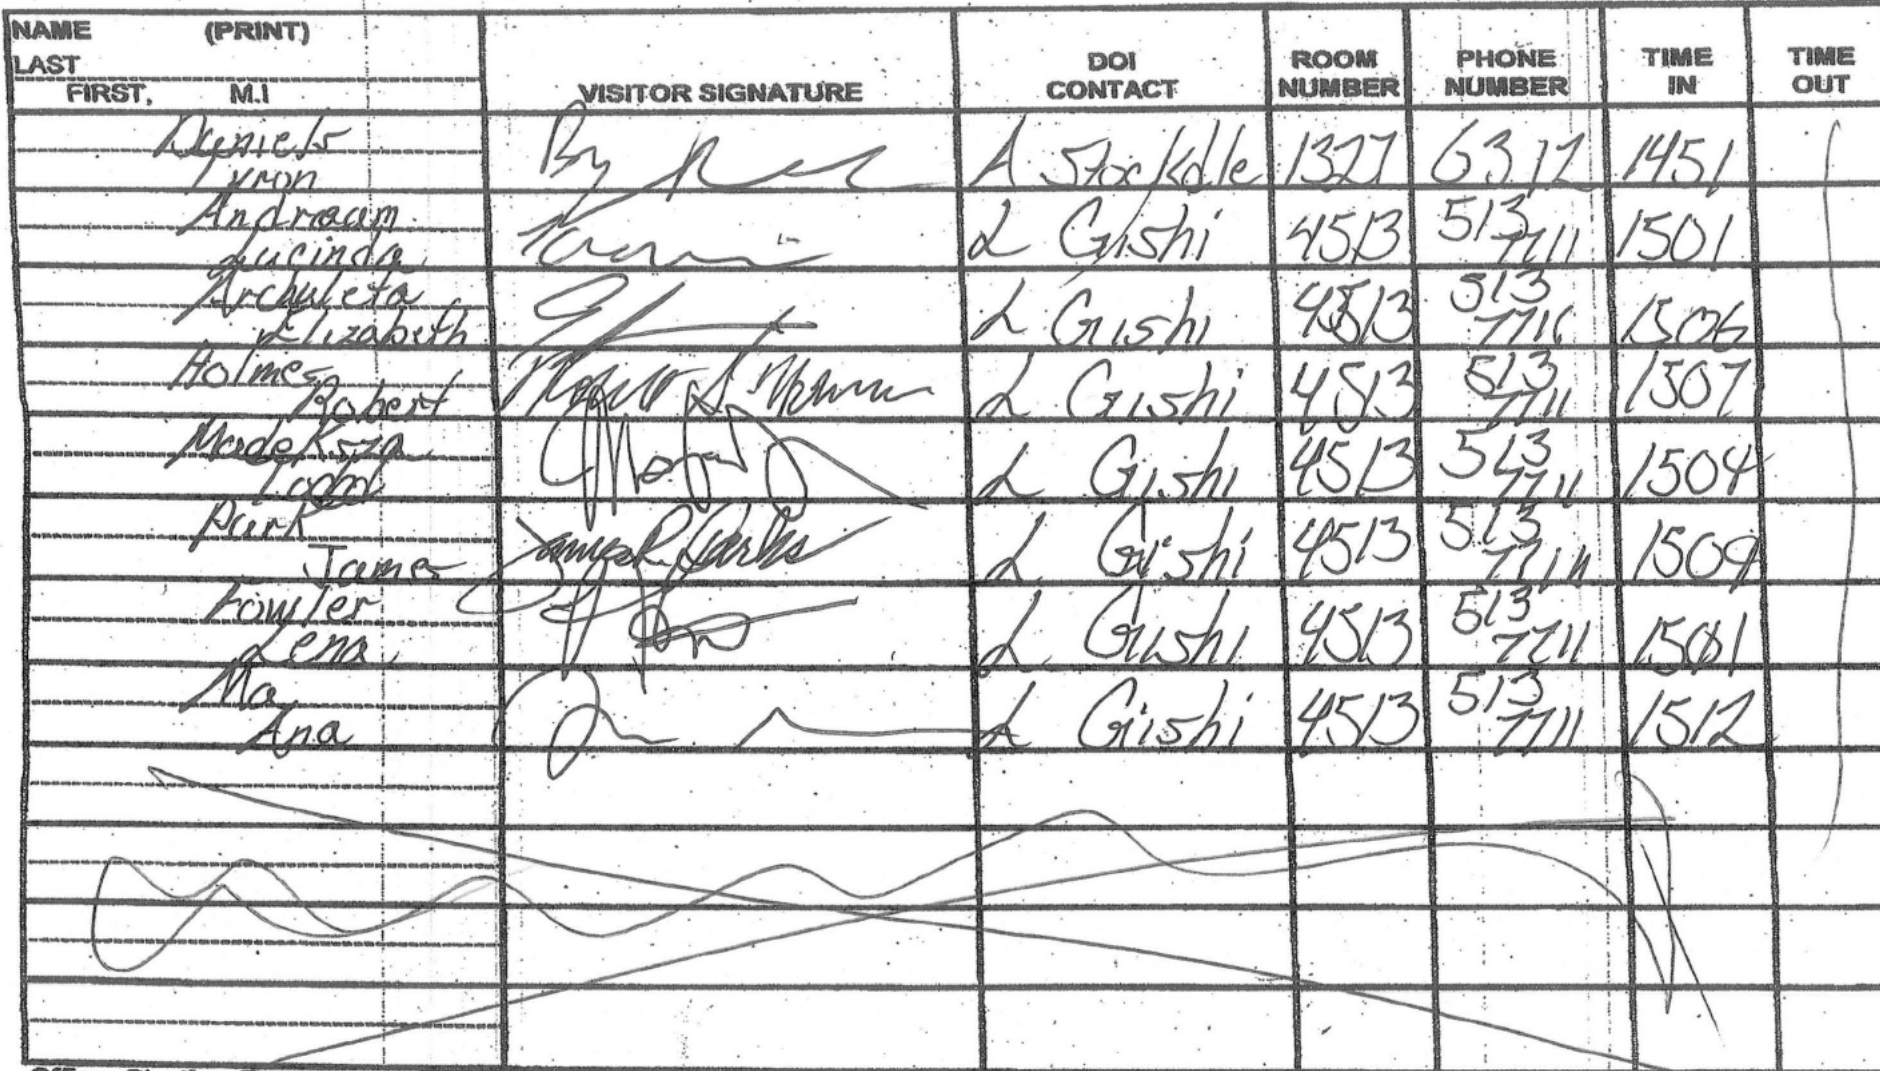 NAME (PRINT)
LAST
FIRST, M.I
VISITOR SIGNATURE
DOI CONTACT
ROOM NUMBER
PHONE NUMBER
TIME IN
TIME OUT
Daniels
Tyron
A Stockdle 1327 6312 1451
Lucinda
L Gishi 4513 513 7711 1501
Archuleta
Elizabeth
L Gishi 4513 513 7711 1506
Holmes
Robert
L Gishi 4513 513 7711 1507
L Gishi 4513 513 7711 1504
Park
James
James R. Parks
L Gishi 4513 513 7711 1509
Fowler
Lena
L Gishi 4513 513 7711 1501
Ma
Ana
L Gishi 4513 513 7711 1512